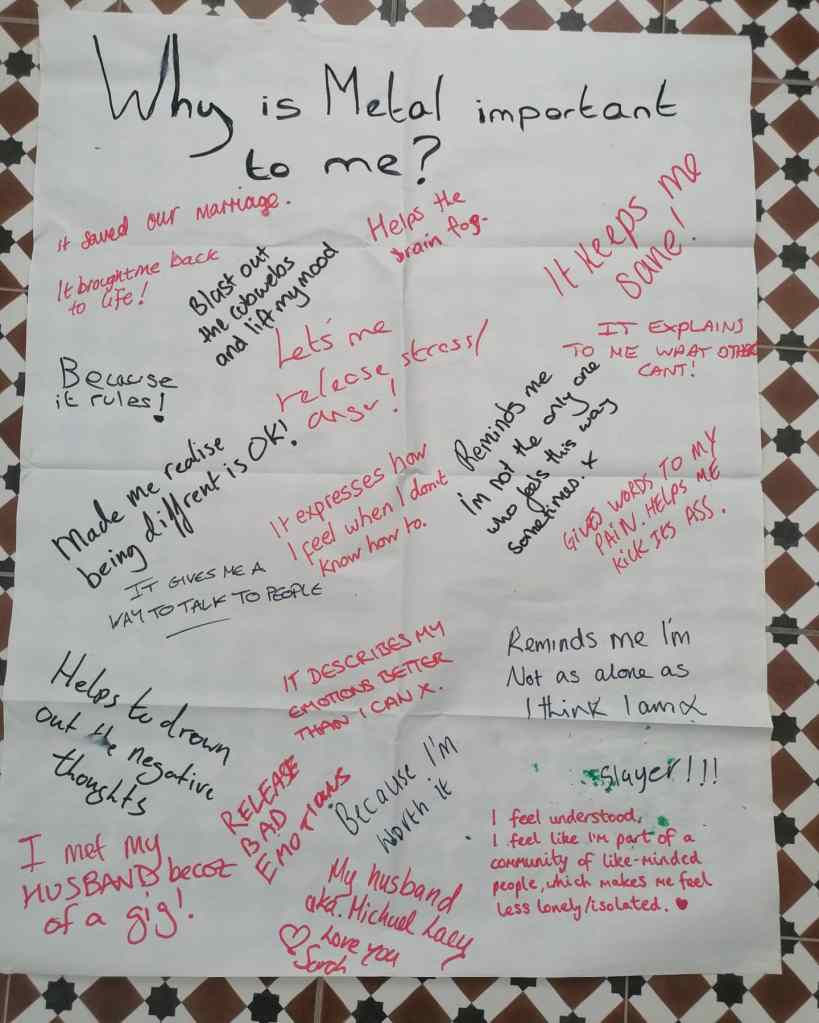 Why is Metal important
to me?
it saved our marriage.
Helps the
brain fog.
It keeps me
sane!
It brought me back
to life!
Blast out
the cobwebs
and lift my mood
Let's me
release stress/
anger!
IT EXPLAINS
TO ME WHAT OTHERS
CANT!
Because
it rules!
Reminds me
I'm not the only one
who feels this way
sometimes. x
Made me realise
being diffrent is OK!
It expresses how
I feel when I don't
know how to.
GIVES WORDS TO MY
PAIN. HELPS ME
KICK ITS ASS.
IT GIVES ME A
WAY TO TALK TO PEOPLE
IT DESCRIBES MY
EMOTIONS BETTER
THAN I CAN X.
Reminds me I'm
Not as alone as
I think I am x
Helps to drown
out the negative
thoughts
RELEASE
BAD
EMOTIONS
Because I'm
worth it
Slayer!!!
I feel understood,
I feel like I'm part of a
community of like-minded
people, which makes me feel
less lonely/isolated. ♥
I met my
HUSBAND becoz
of a gig!
My husband
aka. Michael Lacy
♡ Love you
Sarah